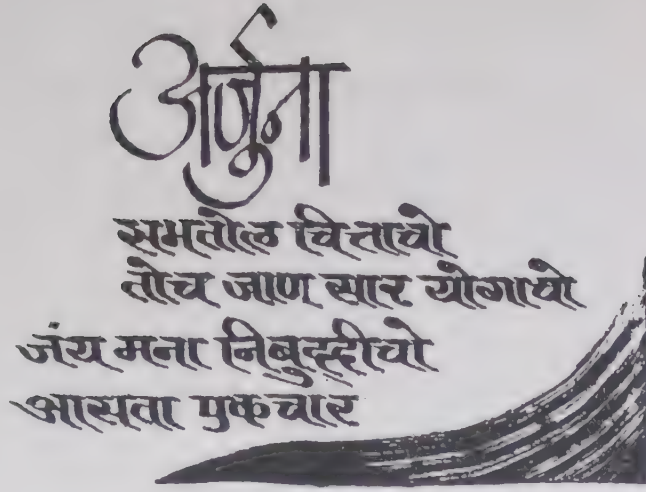 अर्जुना
समतोल चित्ताचो
तोच जाण सार योगाचो
जंय मना निबुद्दीचो
आसता एकचार